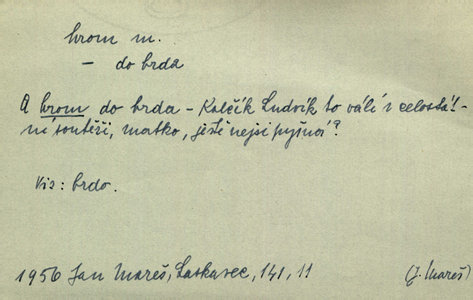 hrom m.
– do brda
A hrom do brda – Kolčík Ludvík to válí v celostát-
ní soutěži, matko, ještě nejsi pyšná?
Viz: brdo.
1956 Jan Mareš, Laskavec, 141, 11
(J. Mareš)